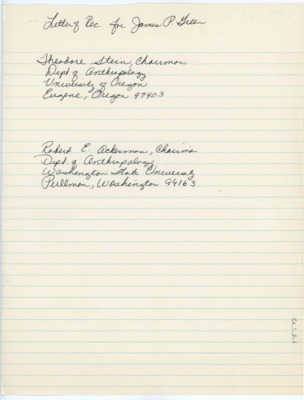 Letter of Rec for James P. Green
Theodore Stern, Chairman
Dept of Anthropology
University of Oregon
Eugene, Oregon 97403
Robert E. Ackerman, Chairman
Dept. of Anthropology
Washington State University
Pullman, Washington 99163